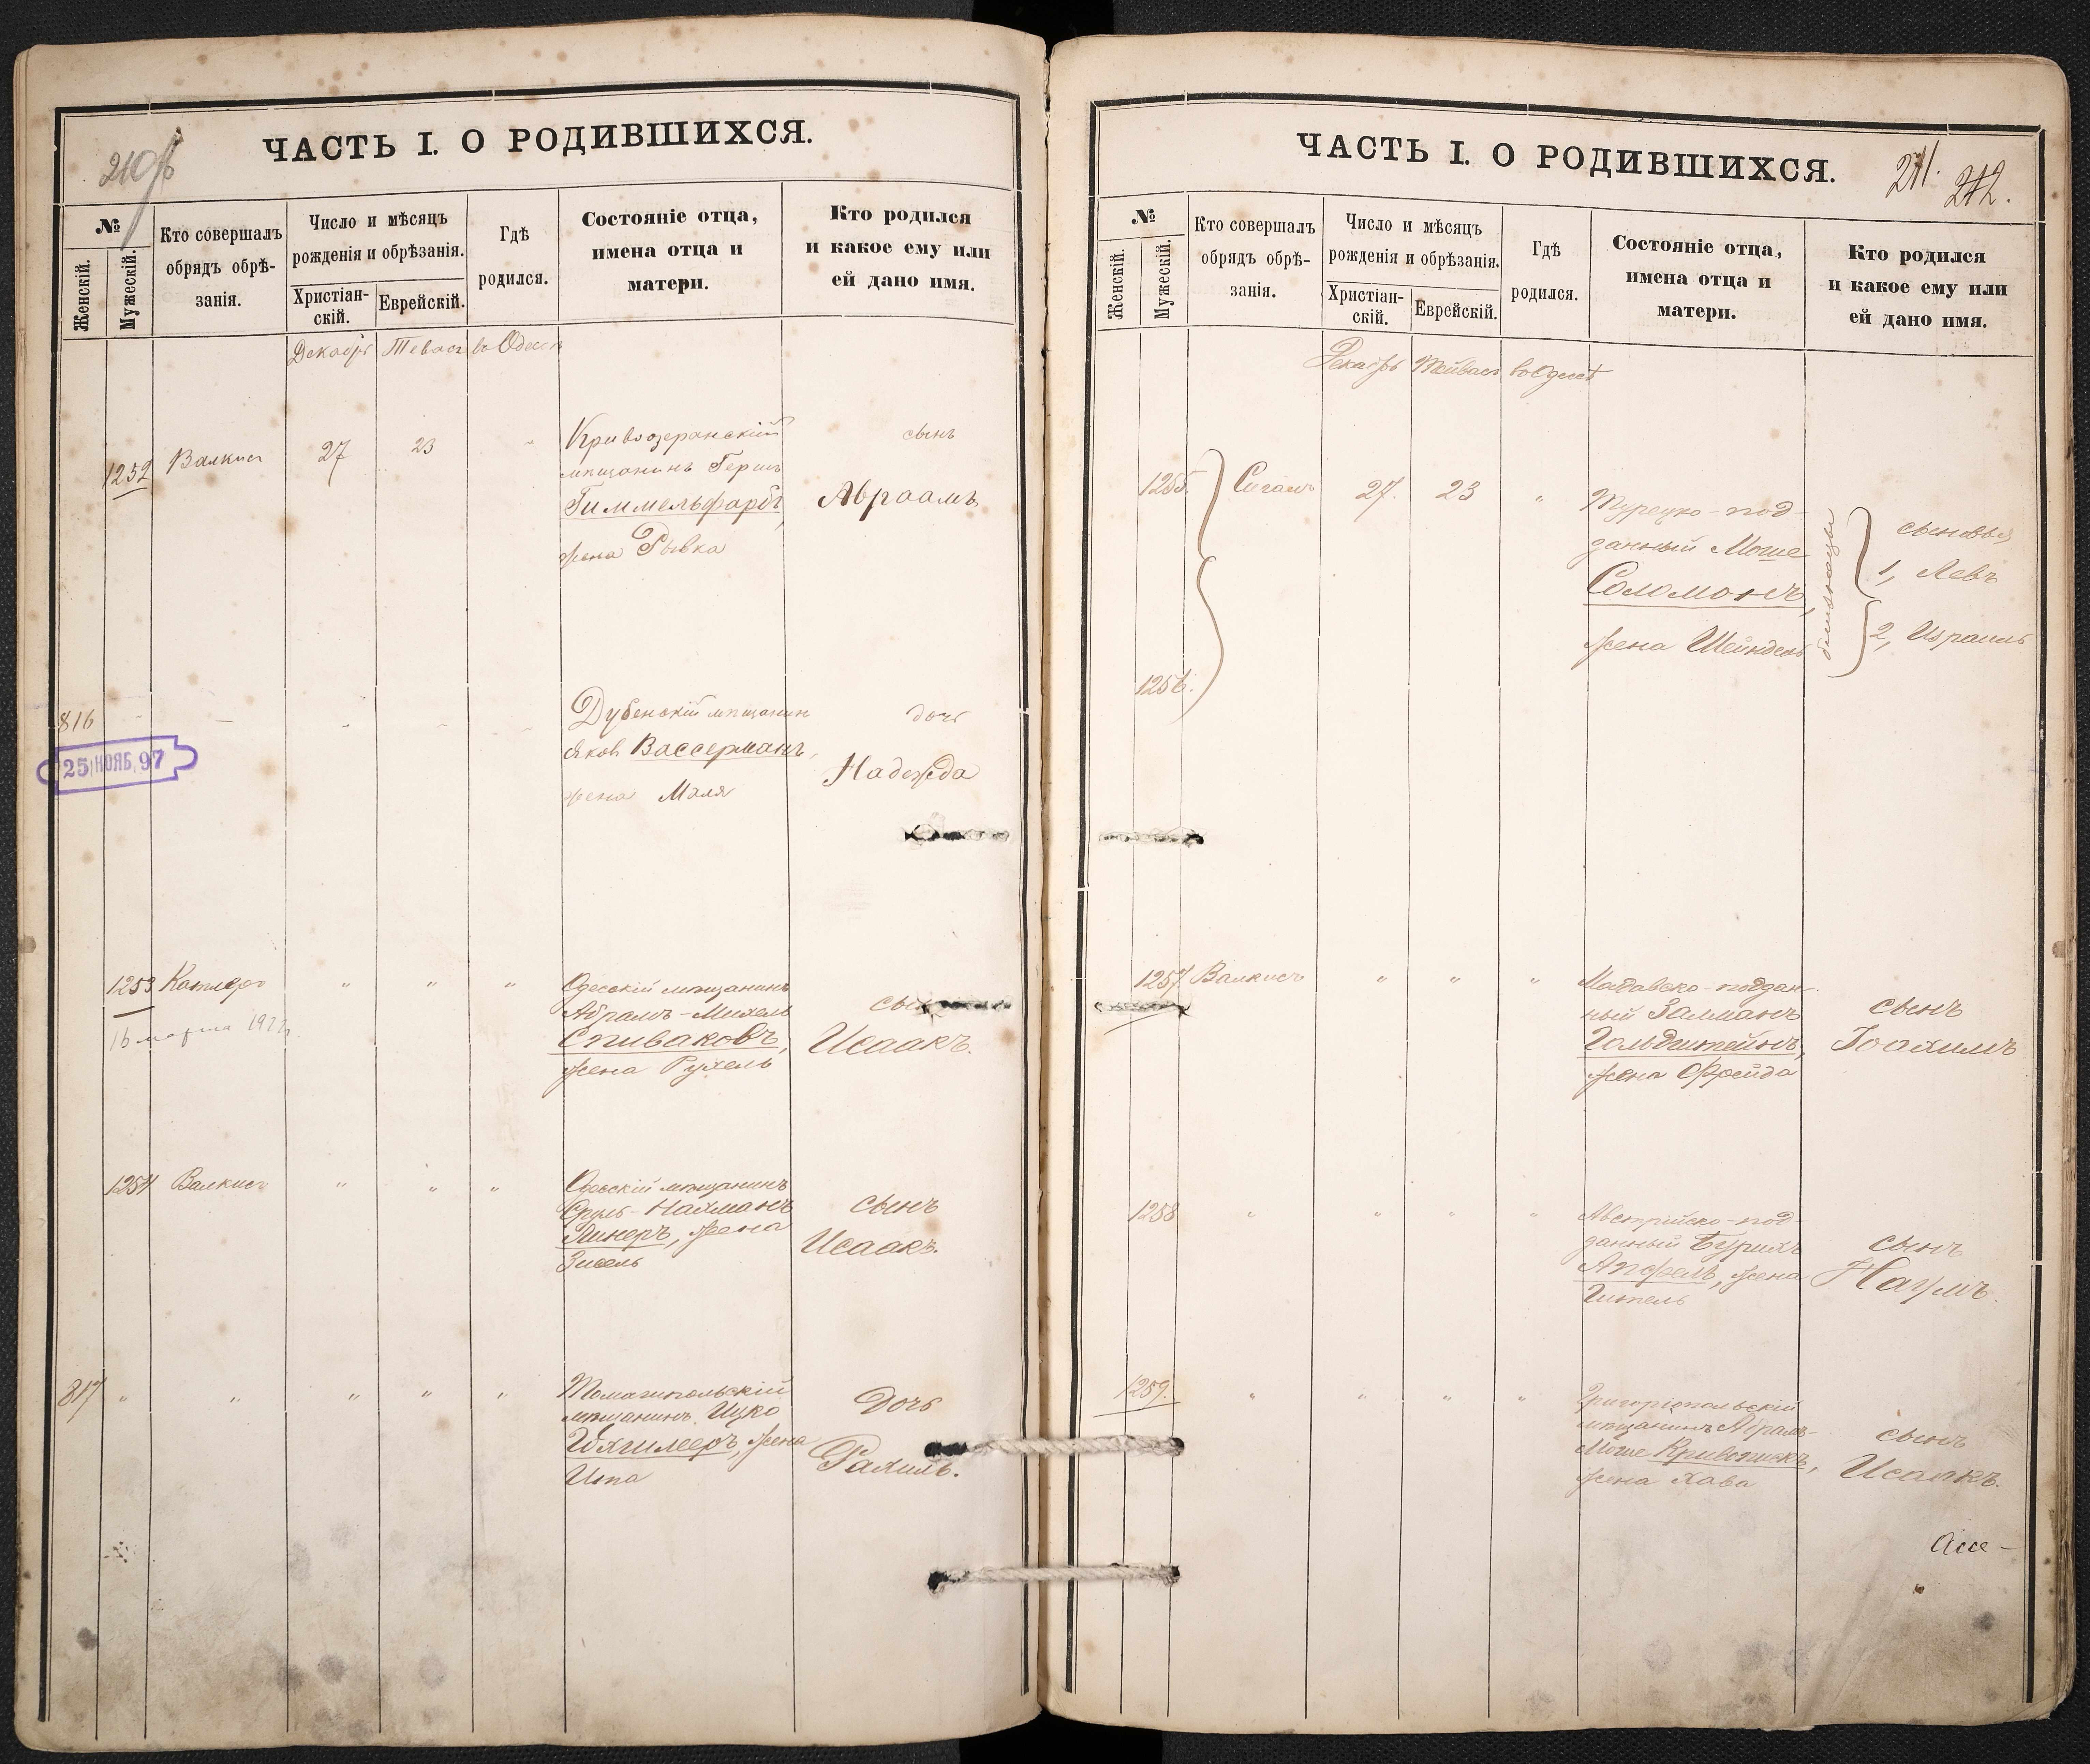 210б
ЧАСТЬ I. О РОДИВШИХСЯ.
№
Женскій.
Мужескій.
Кто совершалъ
обрядъ обрѣ-
занія.
Число и мѣсяцъ
рожденія и обрѣзанія.
Христіан-
скій.
Еврейскій.
Гдѣ
родился.
Состояніе отца,
имена отца и
матери.
Кто родился
и какое ему или
ей дано имя.
Декабрь Тевес въ Одессѣ
1252 Валкис 27 23 "
Кривоозеранскій
мѣщанинъ Гершъ
Гиммельфарбъ,
жена Рывка
сынъ
Авраамъ
816
25 НОЯБ. 97
Дубенскій мѣщанин
Яков Вассерманъ,
жена Маля
дочь
Надежда
1253 " " "
16 марта
Одесскій мѣщанинъ
Абрамъ-Михель
Спиваковъ,
жена Рухель
сынъ
Исаакъ.
1254 Валкис " " "
Одесскій мѣщанинъ
Сруль-Нахманъ
Линеръ, жена
Зисель
сынъ
Исаакъ.
817 " " " " "
мѣщанинъ Ицко
жена
Ита
Дочь
Рахиль.
ЧАСТЬ I. О РОДИВШИХСЯ.
211. 212.
№
Женскій.
Мужескій.
Кто совершалъ
обрядъ обрѣ-
занія.
Число и мѣсяцъ
рожденія и обрѣзанія.
Христіан-
скій.
Еврейскій.
Гдѣ
родился.
Состояніе отца,
имена отца и
матери.
Кто родился
и какое ему или
ей дано имя.
Декабрь Тейвес въ Одессѣ
1255. Сигалъ 27. 23 "
1256.
Турецко-под-
данный Моше
Соломонъ,
жена Шейндель
близнецы
сыновья
1, Левъ
2, Израиль
1257 Валкисъ " " "
Молдавско-поддан-
ный Залманъ
Гольдштейнъ,
жена Фрейда
сынъ
Іоахимъ
1258 " " " "
Австрійско-под-
данный Бурихъ
Апфель, жена
Гитель
сынъ
Наумъ.
1259. " " " "
Григоріопольскій
мѣщанинъ Абрамъ-
Моше Кривопискъ,
жена Хава
сынъ
Исаакъ.
Ассе-